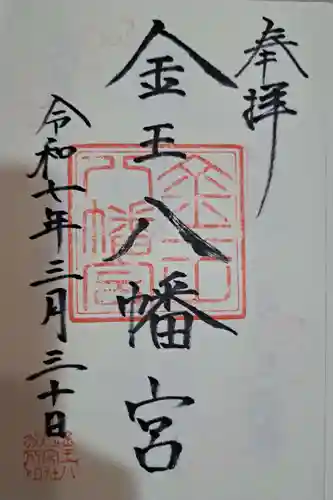 奉拝
金王八幡宮
令和七年三月三十日
金王八幡宮